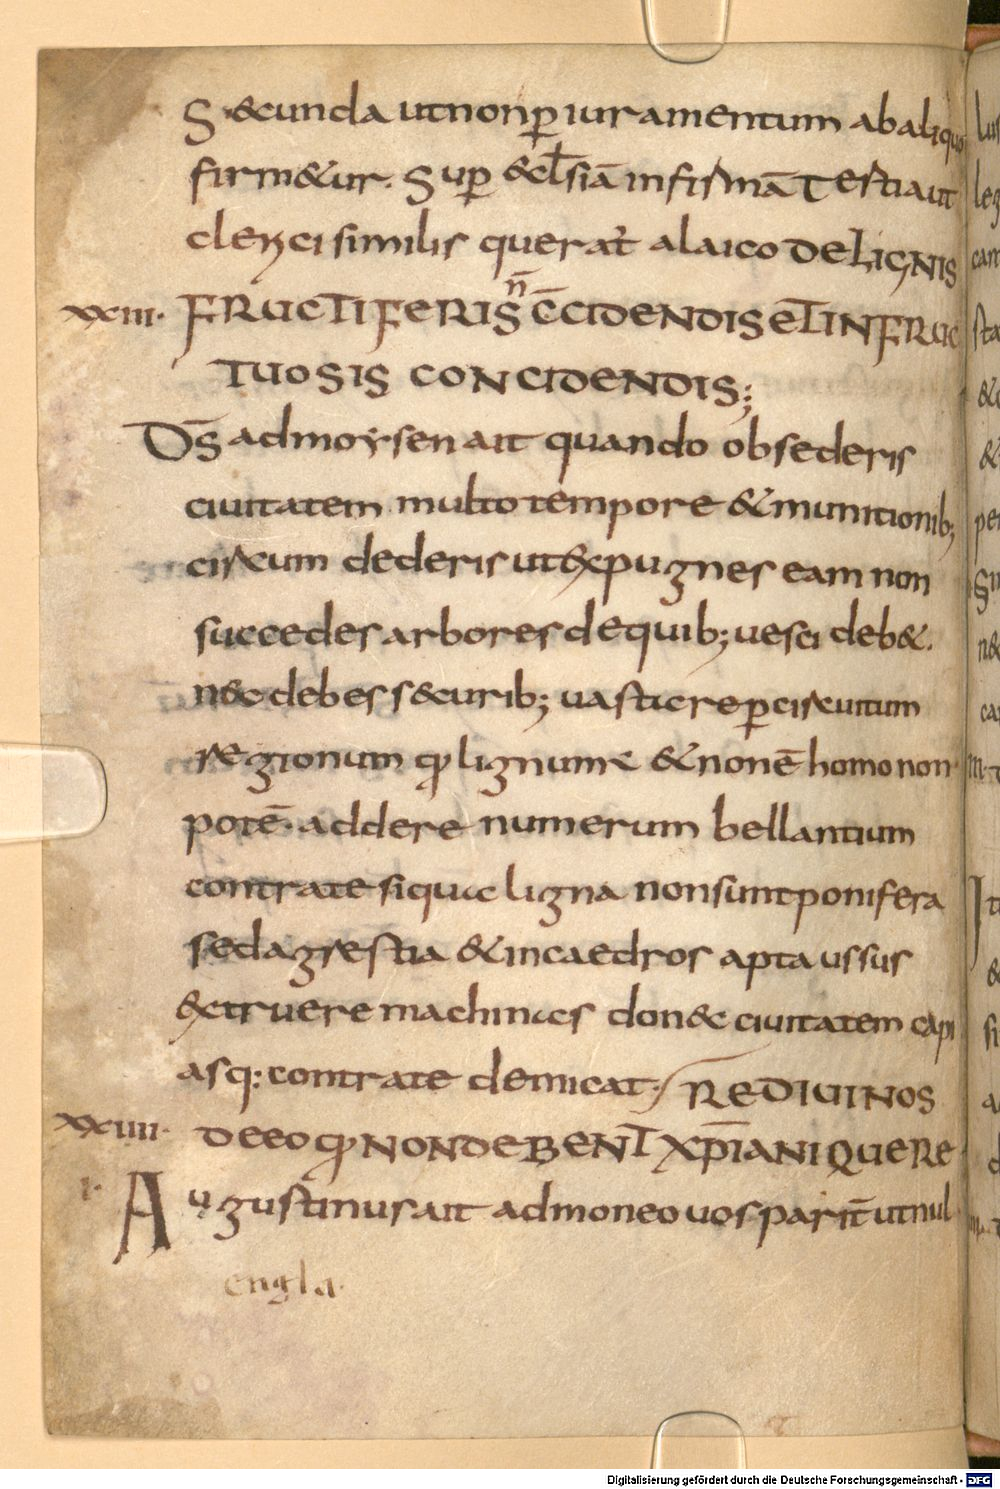 S&cunda utnonꝑ iuramentum abaliquo
firm&ur. Suꝑ &cƚsiā infismā Testiaut
clerici similis querat̄ alaico DeLIGNIS
xxiii. FRUCTIFERIS n̄ C̄CIDENDIS ETINFRUC
TUOSIS CONCIDENDIS;
Ds̄ admoysen ait quando obsederis
ciuitatem multo tempore &munitionib;
circum dederis ut&xpugnes eam non
succedes arbores dequib; uesci deb&.
n&c debes s&curib; uastare ꝑcircuitum
regionum qͦ lignum &nonē homo non
potē. addere numerum bellantium
contrate siquae ligna nonsunt ponifera
sedagrestia &incaedros apta ussus
&truere machinas don&c ciuitatem capi
asq: contrate demicat; REDIUINOS
xxiiii. DEEO qͦ NONDEBENT XP̄IANI QUERE
i. Augustinus ait admoneo uos parit̄ utnul
engla.
Digitalisierung gefördert durch die Deutsche Forschungsgemeinschaft - DFG